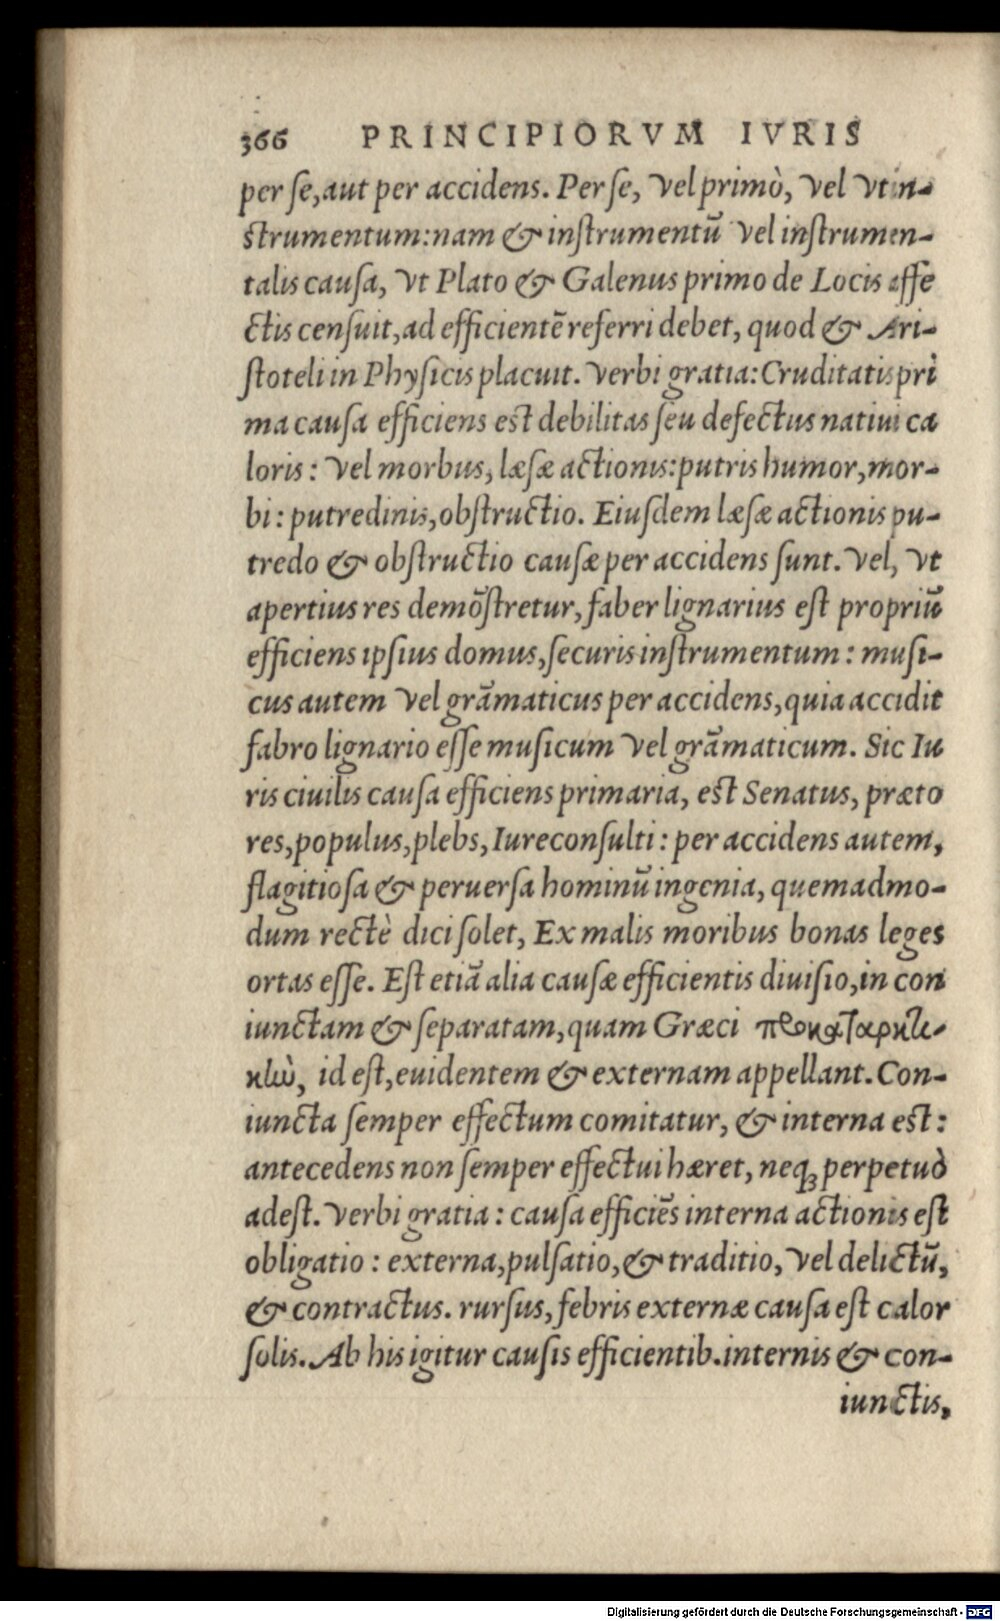 366 PRINCIPIORVM IVRIS
per se, aut per accidens. Per se, vel primò, vel vt in-
strumentum: nam & instrumentū vel instrumen-
talis causa, vt Plato & Galenus primo de Locis affe
ctis censuit, ad efficientē referri debet, quod & Ari-
stoteli in Physicis placuit. Verbi gratia: Cruditatis pri
ma causa efficiens est debilitas seu defectus natiui ca
loris: vel morbus, læsæ actionis: putris humor, mor-
bi: putredinis, obstructio. Eiusdem læsæ actionis pu-
tredo & obstructio causæ per accidens sunt. Vel, vt
apertius res demōstretur, faber lignarius est propriū
efficiens ipsius domus, securis instrumentum: musi-
cus autem vel grāmaticus per accidens, quia accidit
fabro lignario esse musicum vel grāmaticum. Sic Iu
ris ciuilis causa efficiens primaria, est Senatus, præto
res, populus, plebs, Iureconsulti: per accidens autem,
flagitiosa & peruersa hominū ingenia, quemadmo-
dum rectè dici solet, Ex malis moribus bonas leges
ortas esse. Est etiā alia causæ efficientis diuisio, in con
iunctam & separatam, quam Græci προκαταρκτι-
κὴν, id est, euidentem & externam appellant. Con-
iuncta semper effectum comitatur, & interna est:
antecedens non semper effectui hæret, neq; perpetuò
adest. Verbi gratia: causa efficiēs interna actionis est
obligatio: externa, pulsatio, & traditio, vel delictū,
& contractus. rursus, febris externæ causa est calor
solis. Ab his igitur causis efficientib. internis & con-
iunctis,
Digitalisierung gefördert durch die Deutsche Forschungsgemeinschaft - DFG